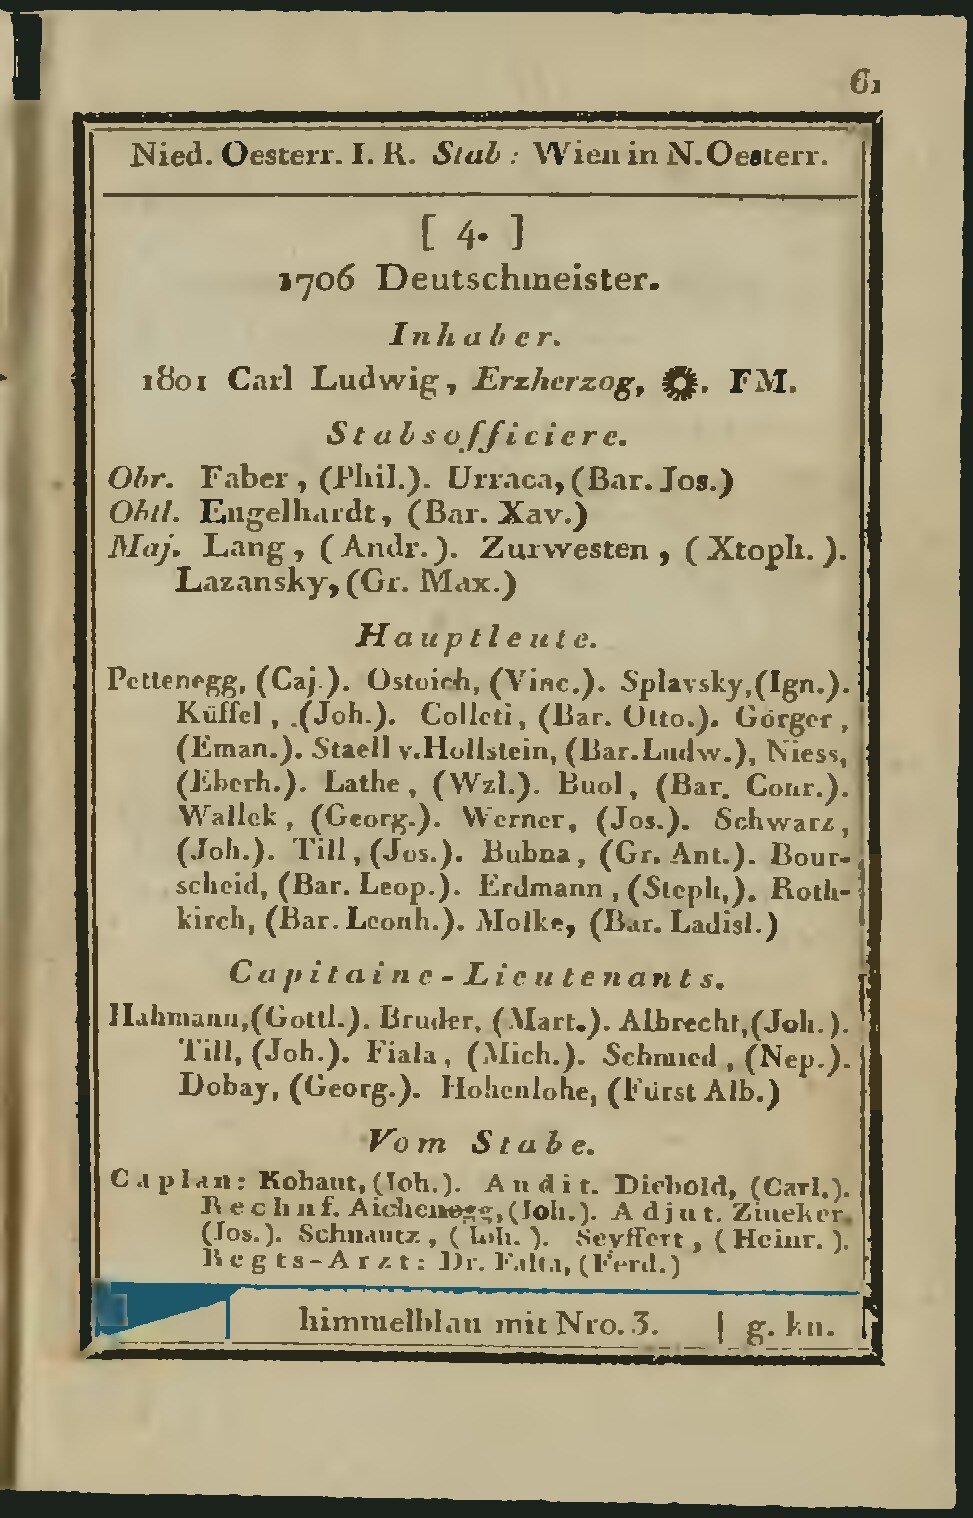 61
Nied. Oesterr. I. R. Stab: Wien in N.Oesterr.
[ 4. ]
1706 Deutschmeister.
Inhaber.
1801 Carl Ludwig, Erzherzog, . FM.
Stabsofficiere.
Obr. Faber, (Phil.). Urraca, (Bar. Jos.)
Obtl. Engelhardt, (Bar. Xav.)
Maj. Lang, (Andr.). Zurwesten, (Xtoph.).
Lazansky, (Gr. Max.)
Hauptleute.
Pettenegg, (Caj.). Ostoich, (Vinc.). Splavsky, (Ign.).
Küffel, (Joh.). Colleti, (Bar. Otto.). Görger,
(Eman.). Staell v. Hollstein, (Bar. Ludw.), Niess,
(Eberh.). Lathe, (Wzl.). Buol, (Bar. Conr.).
Wallek, (Georg.). Werner, (Jos.). Schwarz,
(Joh.). Till, (Jos.). Bubna, (Gr. Ant.). Bour-
scheid, (Bar. Leop.). Erdmann, (Steph.). Roth-
kirch, (Bar. Leonh.). Molke, (Bar. Ladisl.)
Capitaine-Lieutenants.
Hahmann, (Gottl.). Bruder, (Mart.). Albrecht, (Joh.).
Till, (Joh.). Fiala, (Mich.). Schmied, (Nep.).
Dobay, (Georg.). Hohenlohe, (Fürst Alb.)
Vom Stabe.
Caplan: Kohaut, (Joh.). Audit. Diebold, (Carl.).
Rechnf. Aichenegg, (Joh.). Adjut. Zineker,
(Jos.). Schnautz, (Joh.). Seyffert, (Heinr.).
Regts-Arzt: Dr. Falta, (Ferd.)
himmelblau mit Nro. 3. | g. kn.